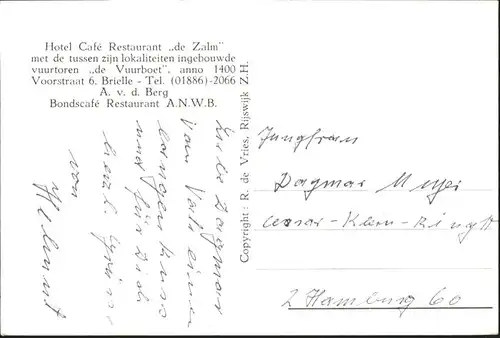 Hotel Café Restaurant „de Zalm"
met de tussen zijn lokaliteiten ingebouwde
vuurtoren „de Vuurboet", anno 1400
Voorstraat 6. Brielle - Tel. (01886)-2066
A. v. d. Berg
Bondscafé Restaurant A.N.W.B.
Liebe Dagmar
vom Vati einen
langen Kuss
und für Dich
herzl. Grüsse
von
Helmut
Copyright: R. de Vries, Rijswijk Z.H.
Jungfrau
Dagmar Meyer
Cesar-Klein-Ring
2 Hamburg 60